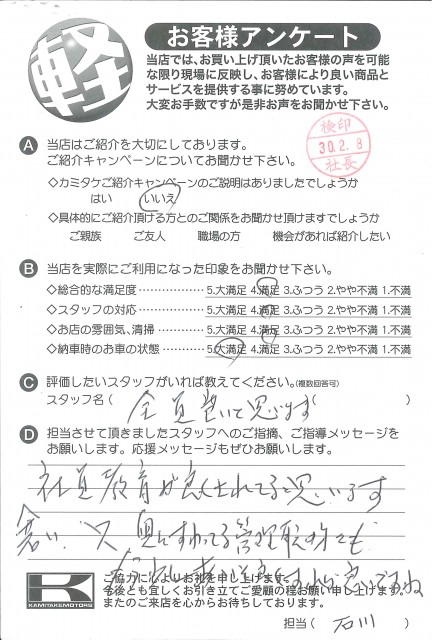 軽
お客様アンケート
当店では、お買い上げ頂いたお客様の声を可能
な限り現場に反映し、お客様により良い商品と
サービスを提供する事に努めています。
大変お手数ですが是非お声をお聞かせ下さい。
検印
30.2.8
社長
A 当店はご紹介を大切にしております。
ご紹介キャンペーンについてお聞かせ下さい。
◇カミタケご紹介キャンペーンのご説明はありましたでしょうか
はい いいえ
◇具体的にご紹介頂ける方とのご関係をお聞かせ頂けますでしょうか
ご親族 ご友人 職場の方 機会があれば紹介したい
B 当店を実際にご利用になった印象をお聞かせ下さい。
◇総合的な満足度 5.大満足 4.満足 3.ふつう 2.やや不満 1.不満
◇スタッフの対応 5.大満足 4.満足 3.ふつう 2.やや不満 1.不満
◇お店の雰囲気、清掃 5.大満足 4.満足 3.ふつう 2.やや不満 1.不満
◇納車時のお車の状態 5.大満足 4.満足 3.ふつう 2.やや不満 1.不満
C 評価したいスタッフがいれば教えてください。(複数回答可)
スタッフ名 ( 全員良いと思います )
D 担当させて頂きましたスタッフへのご指摘、ご指導メッセージを
お願いします。応援メッセージもぜひお願いします。
社員教育が良くされてると思います
奥にすわってる管理職の方も
K
KAMITAKEMOTORS
ご協力に心よりお礼を申し上げます。
今後とも宜しくお引き立てご愛顧の程お願い申し上げます。
またのご来店を心からお待ちしております。
担当 ( 石川 )